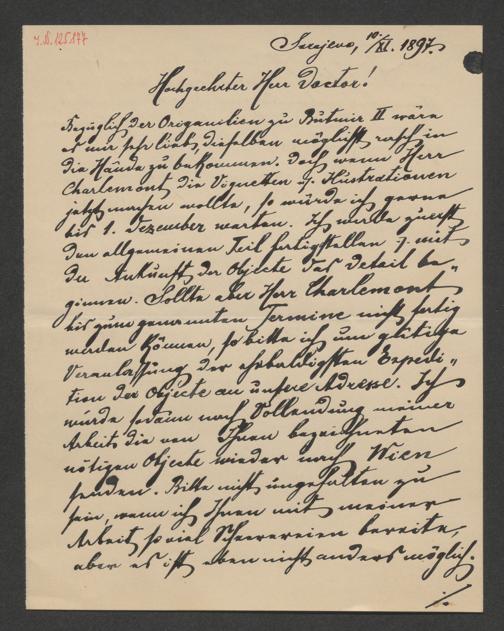 I.N. 125177
Sarajevo, 10./XI. 1897.
Hochgeehrter Herr Doctor!
Bezüglich der Originalien zu Butmir II wäre
es mir sehr lieb, dieselben möglichst rasch in
die Hände zu bekommen. Doch wenn Herr
Charlemont die Vignetten u. Illustrationen
jetzt machen wollte, so würde ich gerne
bis 1. Dezember warten. Ich werde zuerst
den allgemeinen Teil fertigstellen u. mit
der Ankunft der Objecte das Detail be-
ginnen. Sollte aber Herr Charlemont
bis zum genannten Termine nicht fertig
werden können, so bitte ich um gütige
Veranlassung der ehebaldigsten Expedi-
tion der Objecte an unsere Adresse. Ich
würde sodann nach Vollendung meiner
Arbeit die von Ihnen bezeichneten
nötigen Objecte wieder nach Wien
senden. Bitte nicht ungehalten zu
sein, wenn ich Ihnen mit meiner
Arbeit soviel Scherereien bereite,
aber es ist eben nicht anders möglich.
./.